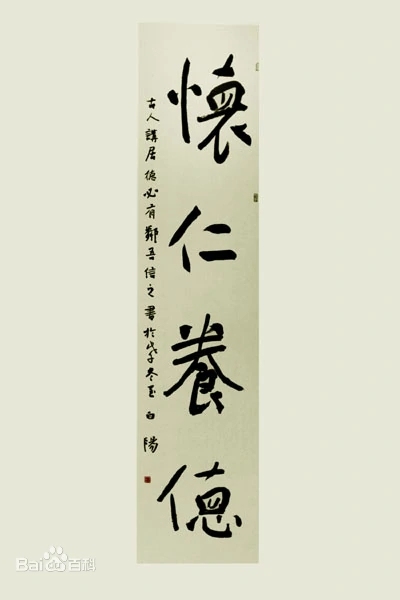 懷仁養德
古人講居德必有鄰吾信之書於戊子冬至白陽
Bai百科